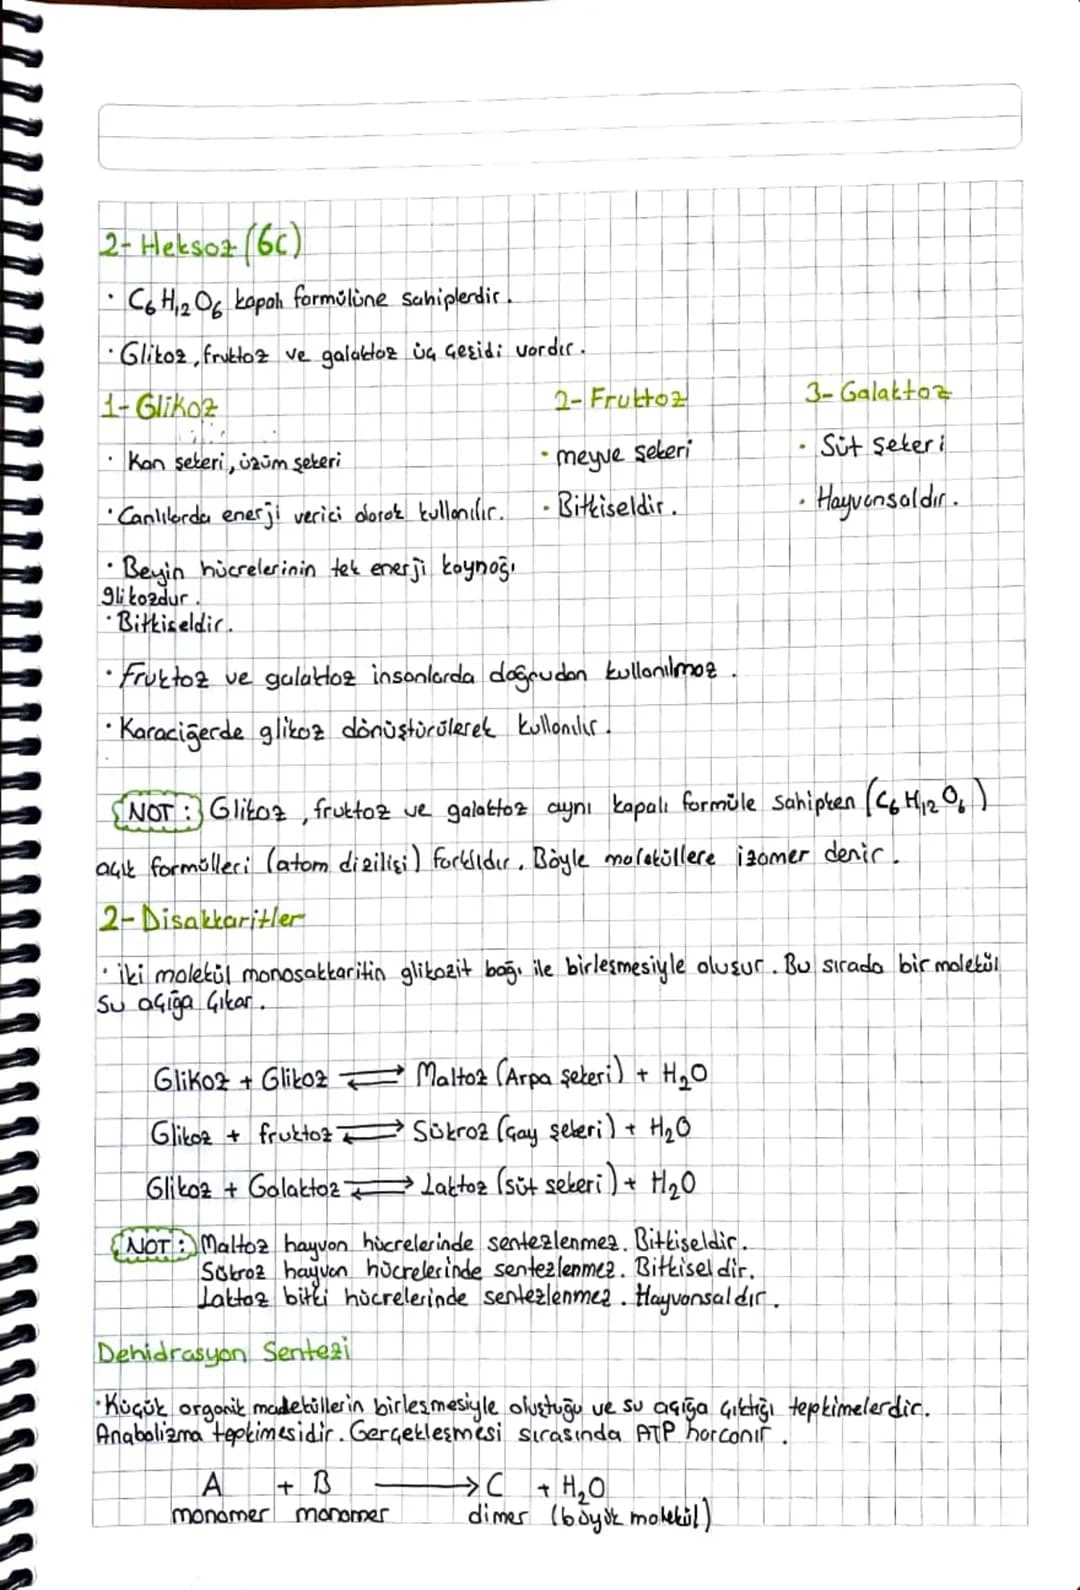 2- Heksoz (6C)
· C₆H₁₂O₆ kapalı formülüne sahiplerdir.
· Glikoz, fruktoz ve galaktoz üç çeşidi vardır.
1- Glikoz 2- Fruktoz 3- Galaktoz
· Kan şekeri, üzüm şekeri · meyve şekeri · Süt şekeri
· Canlılarda enerji verici olarak kullanılır. · Bitkiseldir. · Hayvansaldır.
· Beyin hücrelerinin tek enerji kaynağı
glikozdur.
· Bitkiseldir.
· Fruktoz ve galaktoz insanlarda doğrudan kullanılmaz.
· Karaciğerde glikoz dönüştürülerek kullanılır.
NOT: Glikoz, fruktoz ve galaktoz aynı kapalı formüle sahipken (C₆H₁₂O₆)
açık formülleri (atom dizilişi) farklıdır. Böyle moleküllere izomer denir.
2- Disakkaritler
· iki molekül monosakkaritin glikozit bağı ile birleşmesiyle oluşur. Bu sırada bir molekül
su açığa çıkar.
Glikoz + Glikoz ⇌ Maltoz (Arpa şekeri) + H₂O
Glikoz + fruktoz ⇌ Sükroz (Çay şekeri) + H₂O
Glikoz + Galaktoz ⇌ Laktoz (süt şekeri) + H₂O
NOT: Maltoz hayvan hücrelerinde sentezlenmez. Bitkiseldir.
Sükroz hayvan hücrelerinde sentezlenmez. Bitkiseldir.
Laktoz bitki hücrelerinde sentezlenmez. Hayvansaldır.
Dehidrasyon Sentezi
· Küçük organik madeküllerin birleşmesiyle oluştuğu ve su açığa çıktığı tepkimelerdir.
Anabolizma tepkimesidir. Gerçekleşmesi sırasında ATP harcanır.
A + B → C + H₂O
monomer monomer dimer (büyük molekül)